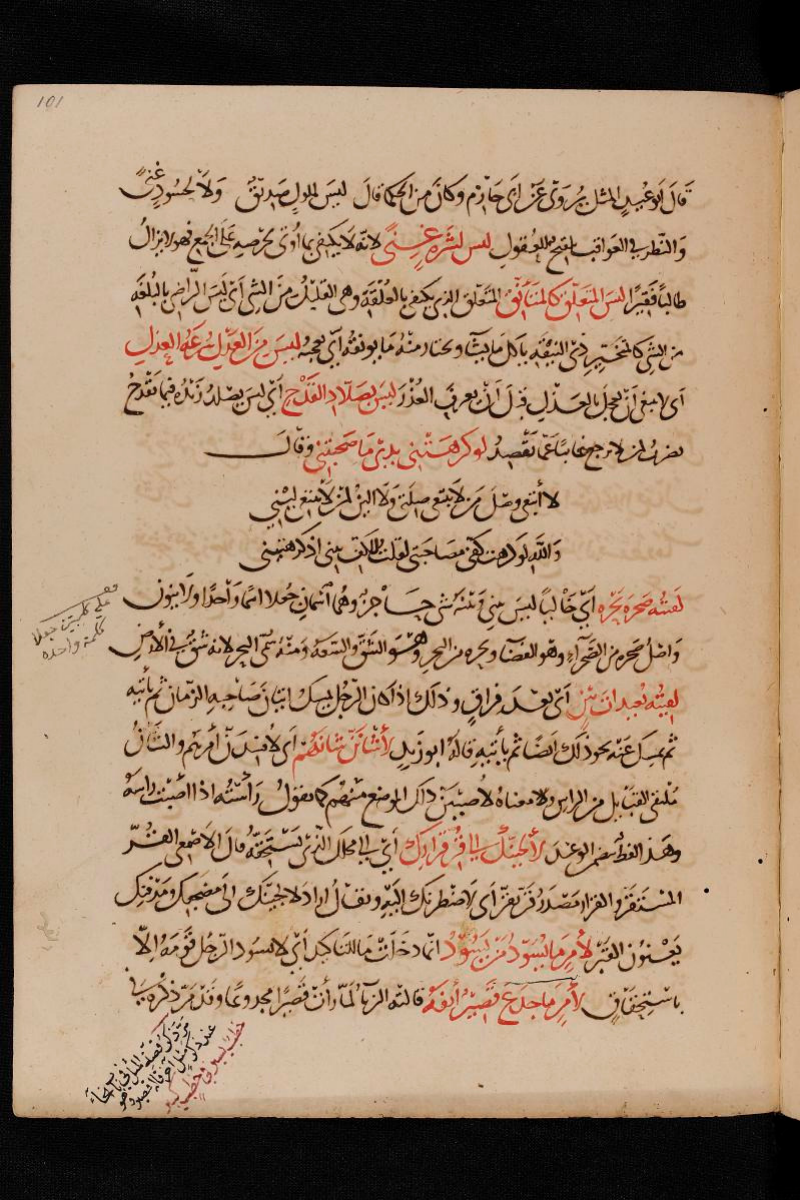 101
قال أبو عبيد المثل يروى عن أبي حازم وكان من الحكماء قال ليس لملول صديق ولا لحسود غنى
والنظر في العواقب تلقيح للعقول ليس لشره غنى لأنه لا يكتفي بما أوتي لحرصه على الجمع فهو لا يزال
طالبا فقيرا ليس المتعلق كالمتأنق المتعلق الذي يكتفي بالعلقة وهي القليل من الشي أي ليس الراضي بالبلغة
من الشي كالمتخير ذي النيقة يأكل ما يشا ويختار منه ما يونقه أي يعجبه ليس من العدل سرعة العذل
أي لا ينبغي أن يعجل بالعذل قبل أن يعرف العذر ليس بصلاد القدح أي ليس يصلد زنده فيما يقدح
يضرب لمن لا يرجع خائبا عما يقصد لو كرهتني يدي ما صحبتني وقال
لا أبتغي وصل من لا يبتغي صلتي ولا ألين لمن لا يبتغي ليني
والله لو كرهت كفي مصاحبتي لقلت للكف بيني إذ كرهتيني
لقيته صحرة بحرة أي خاليا ليس بيني وبينه شي حاجز وهما اسمان جعلا اسما واحدا ولا ينون
وأصل صحره من الصحراء وهو الفضاء وبحره من البحر وهو الشق والسعة ومنه سمي البحر لانه شق في الأرض
لقيته بعيدات بين أي بعد فراق وذلك إذا كان الرجل يمسك إتيان صاحبه الزمان ثم يأتيه
ثم يمسك عنه نحو ذلك أيضا ثم يأتيه قاله أبو زيد لأشأنن شأنهم أي لأفسدن أمرهم والشان
ملتقى القبايل من الراس ومعناه لأصيبن ذلك الموضع منهم كما يقول رأسته اذا أصبت راسه
وهذا لفظ يضمن الوعيد لألجئنك إلى قر قرارك أي إلى محلك الذي تستحقه قال الأصمعي القر
المستقر والقرار مصدر قر يقر أي لأضطرنك إليه ويقال اراد لألجئنك إلى مضجعك ومدفنك
يعنون القبر لأمر ما يسود من يسود انما دخلت ما للتاكيد أي لا يسود الرجل قومه إلا
باستحقاق لأمر ما جدع قصير أنفه قالته الزباء لما رأت قصيرا مجدوعا وقد مر ذكره في
خطب يسير في خطب كبير
على كلمتين جعلا
كلمة واحدة